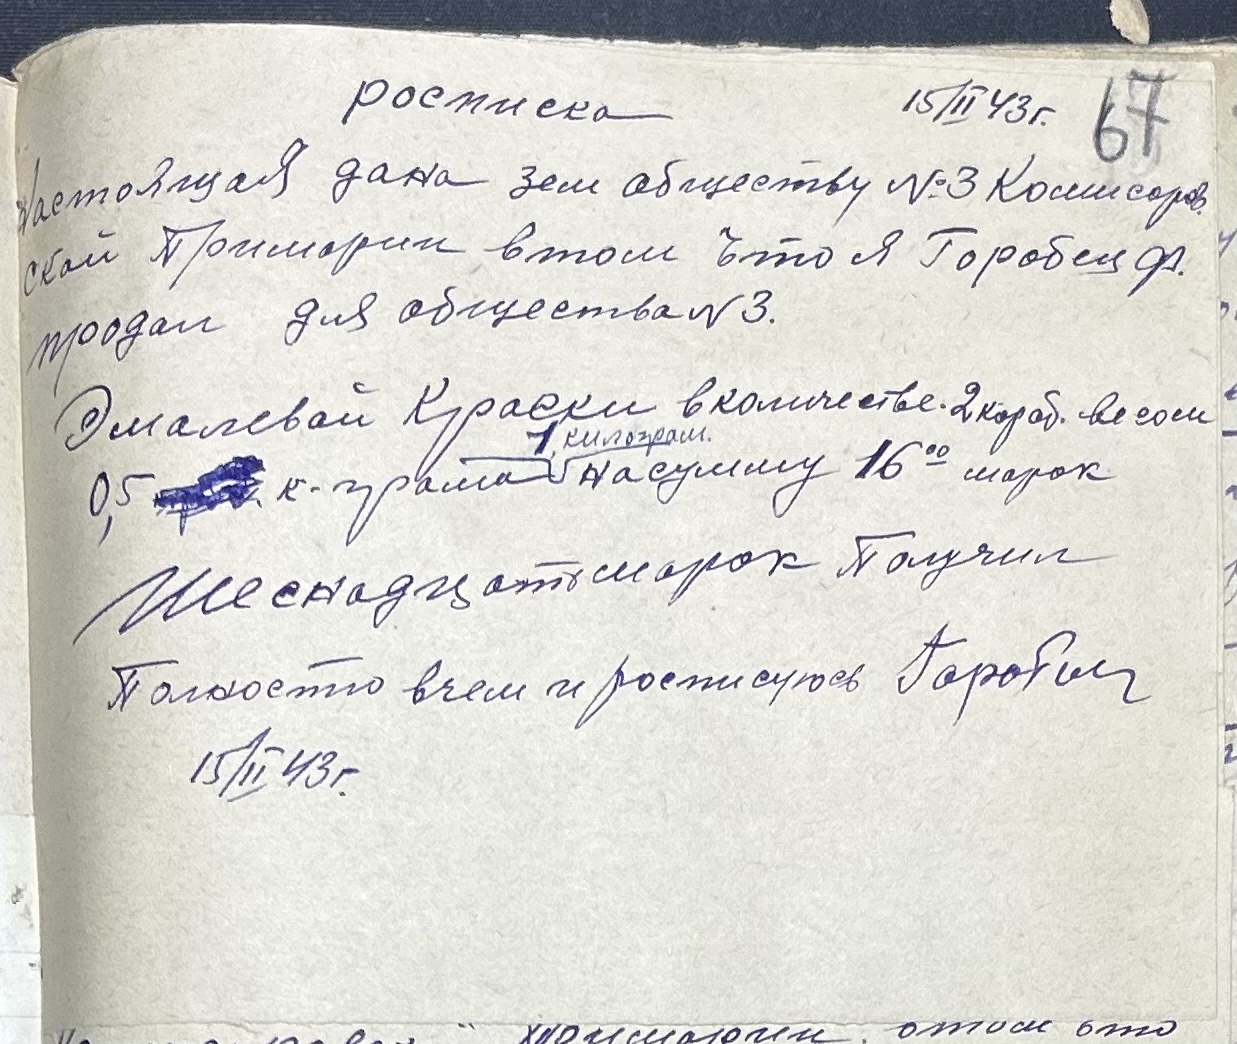 росписка 15/II 43г. 67
Настоящая дана зем обществу №3 Комисаров
ской Примарии втом что я Горобец Ф.
продал для общества N3.
Эмалевай Краски вколичестве. 2 короб. весом
1, килограм.
0,5 к-грама на сумму 16 00 марок
Шеснадцать марок Получил
Полностю вчем и росписуюсь Горобец
15/II 43г.
Примарии втом что